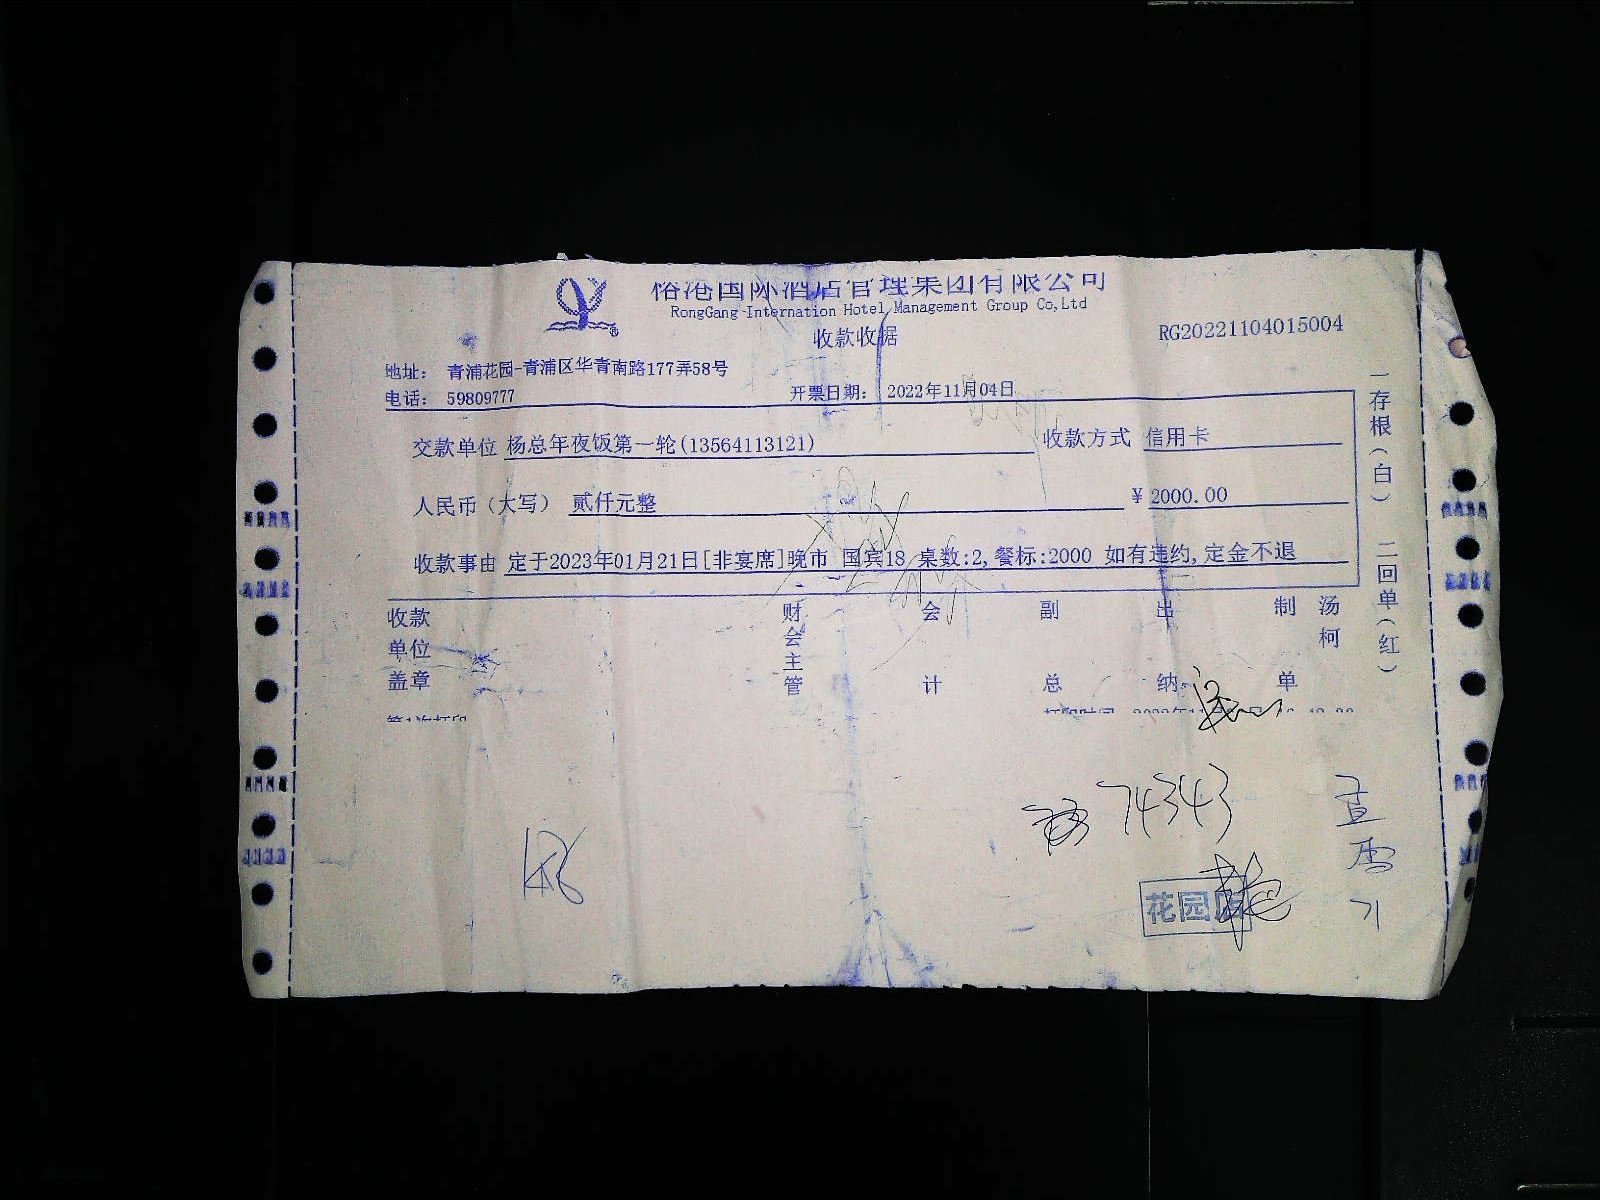 国际酒店管理集团有限公司
RongGang International Hotel Management Group Co,Ltd
收款收据
RG20221104015004
地址： 青浦花园-青浦区华青南路177弄58号
电话： 59809777 开票日期： 2022年11月04日
交款单位 杨总年夜饭第一轮(13564113121) 收款方式 信用卡
人民币（大写） 贰仟元整 ¥ 2000.00
收款事由 定于2023年01月21日[非宴席]晚市 国宾18 桌数:2,餐标:2000 如有违约,定金不退
收款单位盖章 财会主管 会计 副总 出纳 制单 汤柯
一存根（白） 二回单（红）
第1次打印
74343
花园店